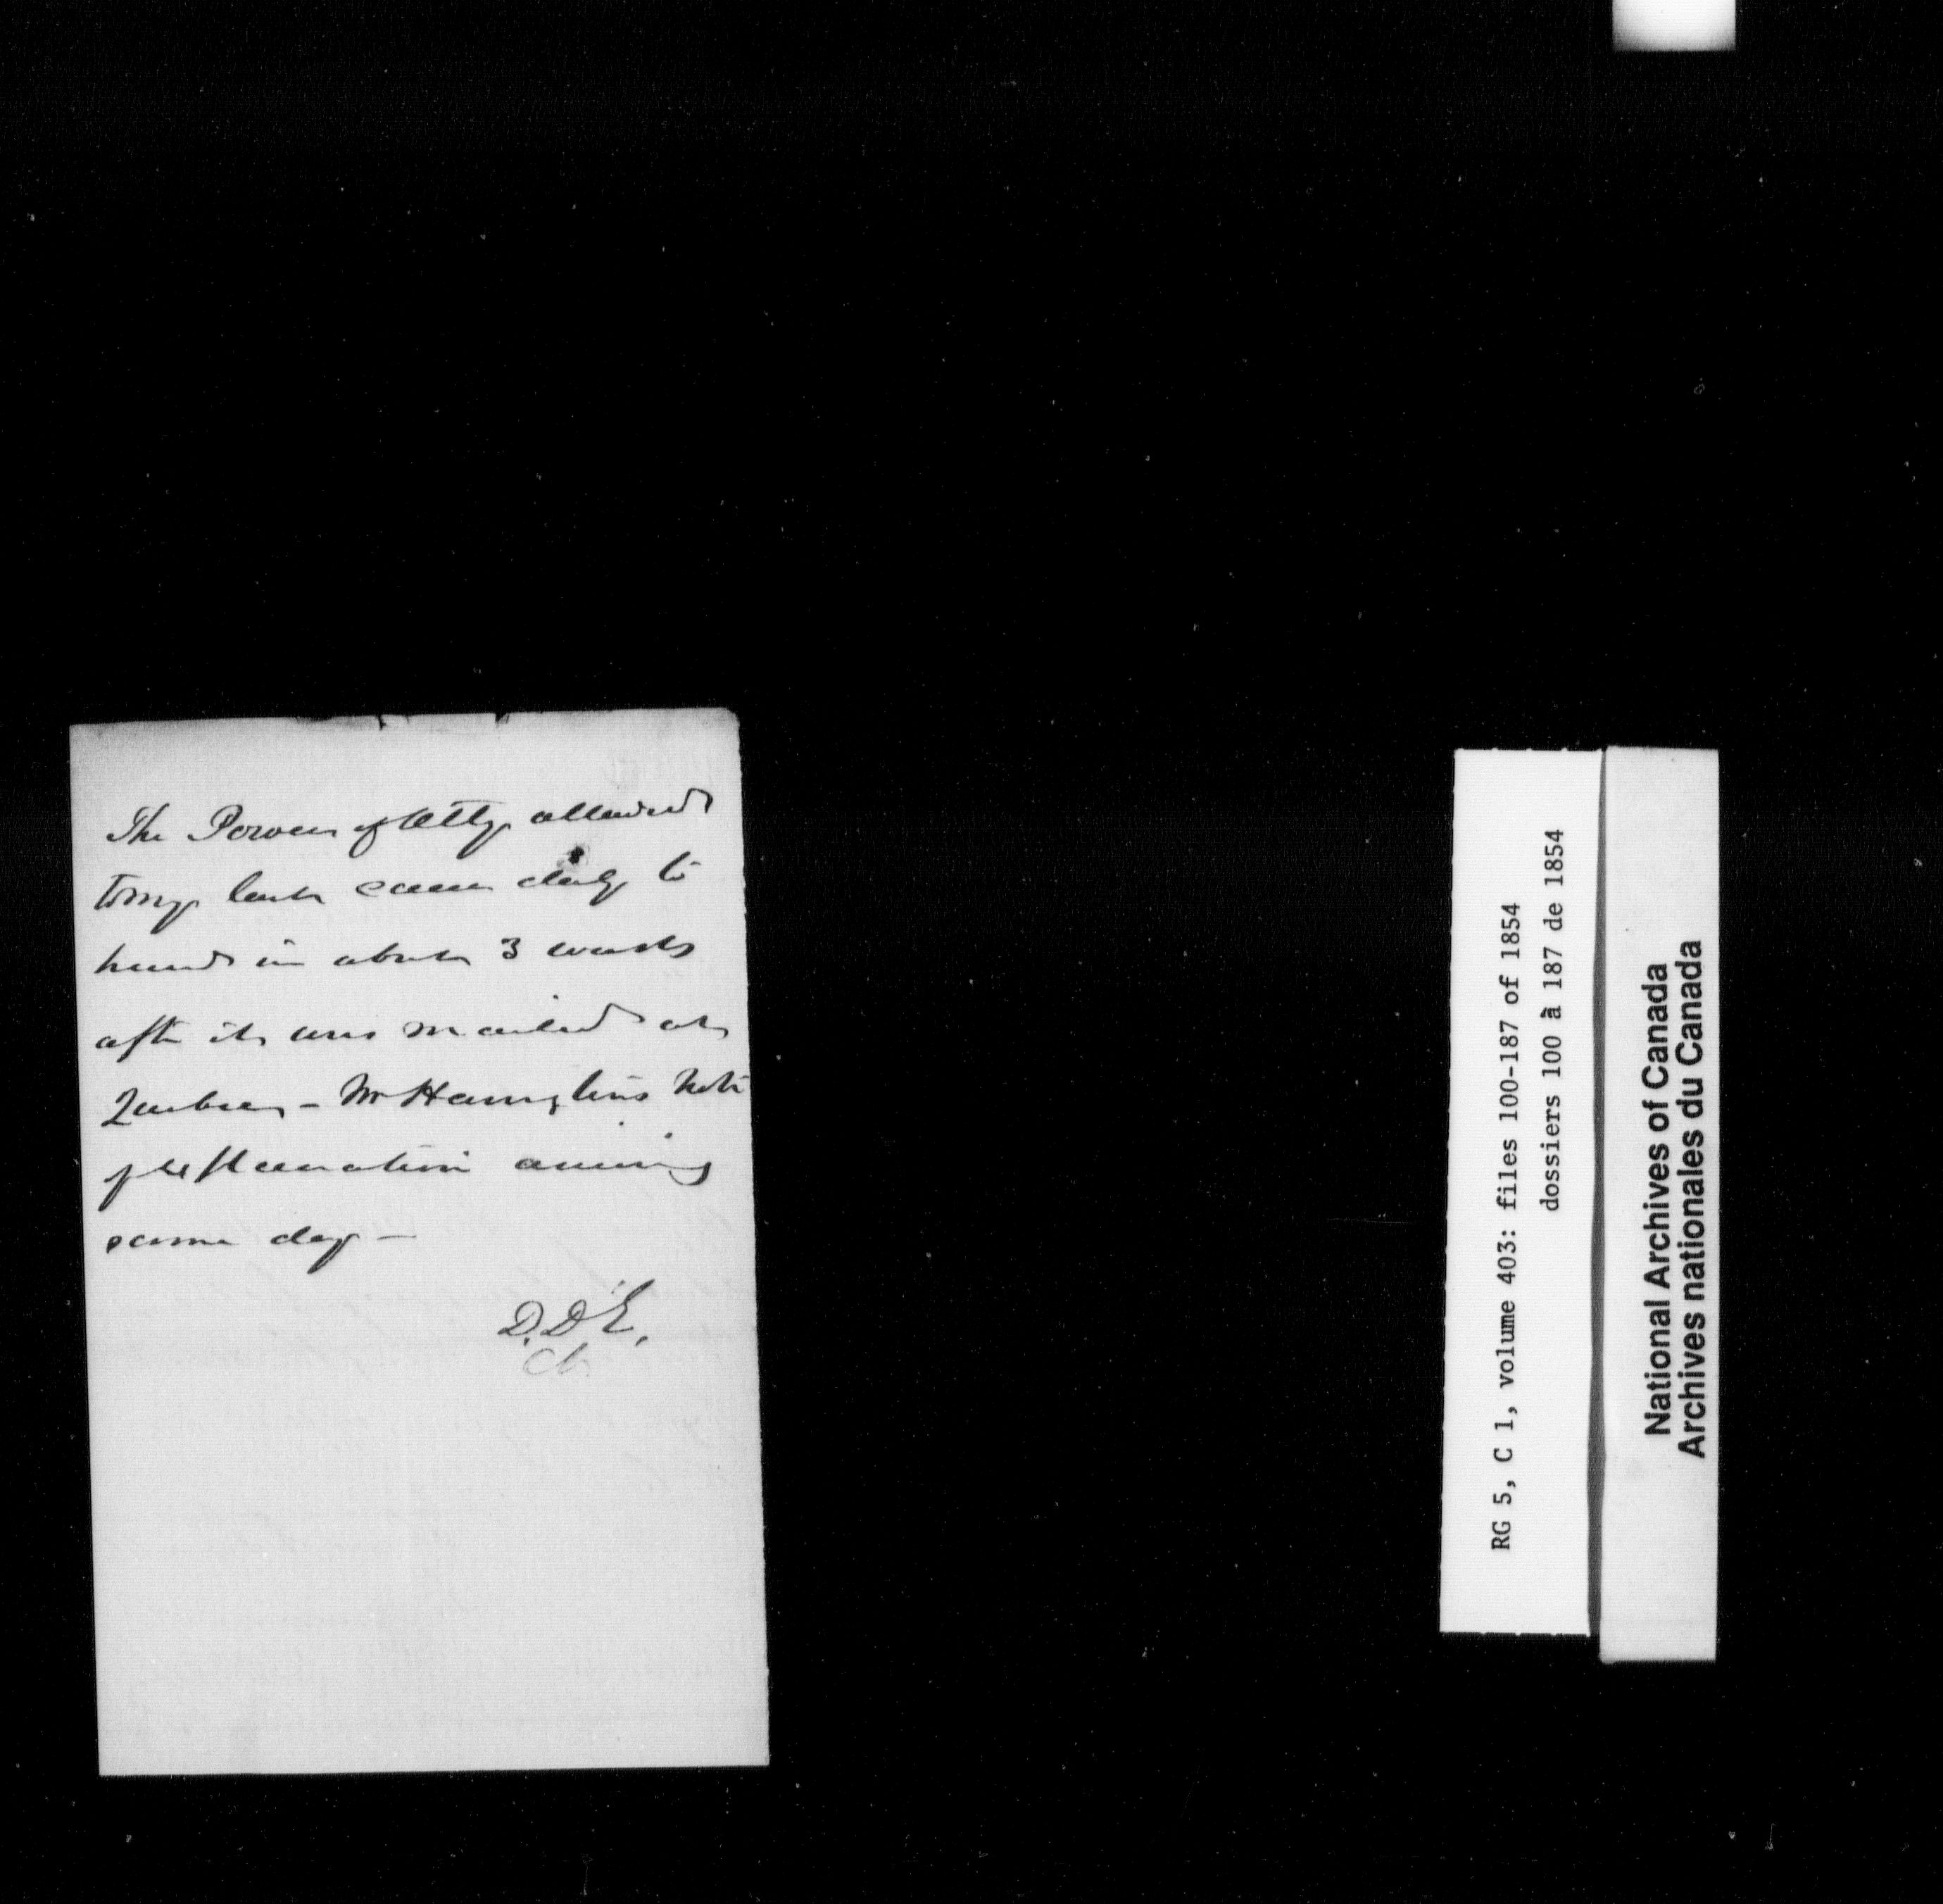 The Power of Atty allowed
to my last came duly to
hand in about 3 weeks
after it was mailed at
Quebec - Mr Harrington's note
of explanation coming
same day -
D.D.E.
RG 5, C 1, volume 403: files 100-187 of 1854
dossiers 100 à 187 de 1854
National Archives of Canada
Archives nationales du Canada